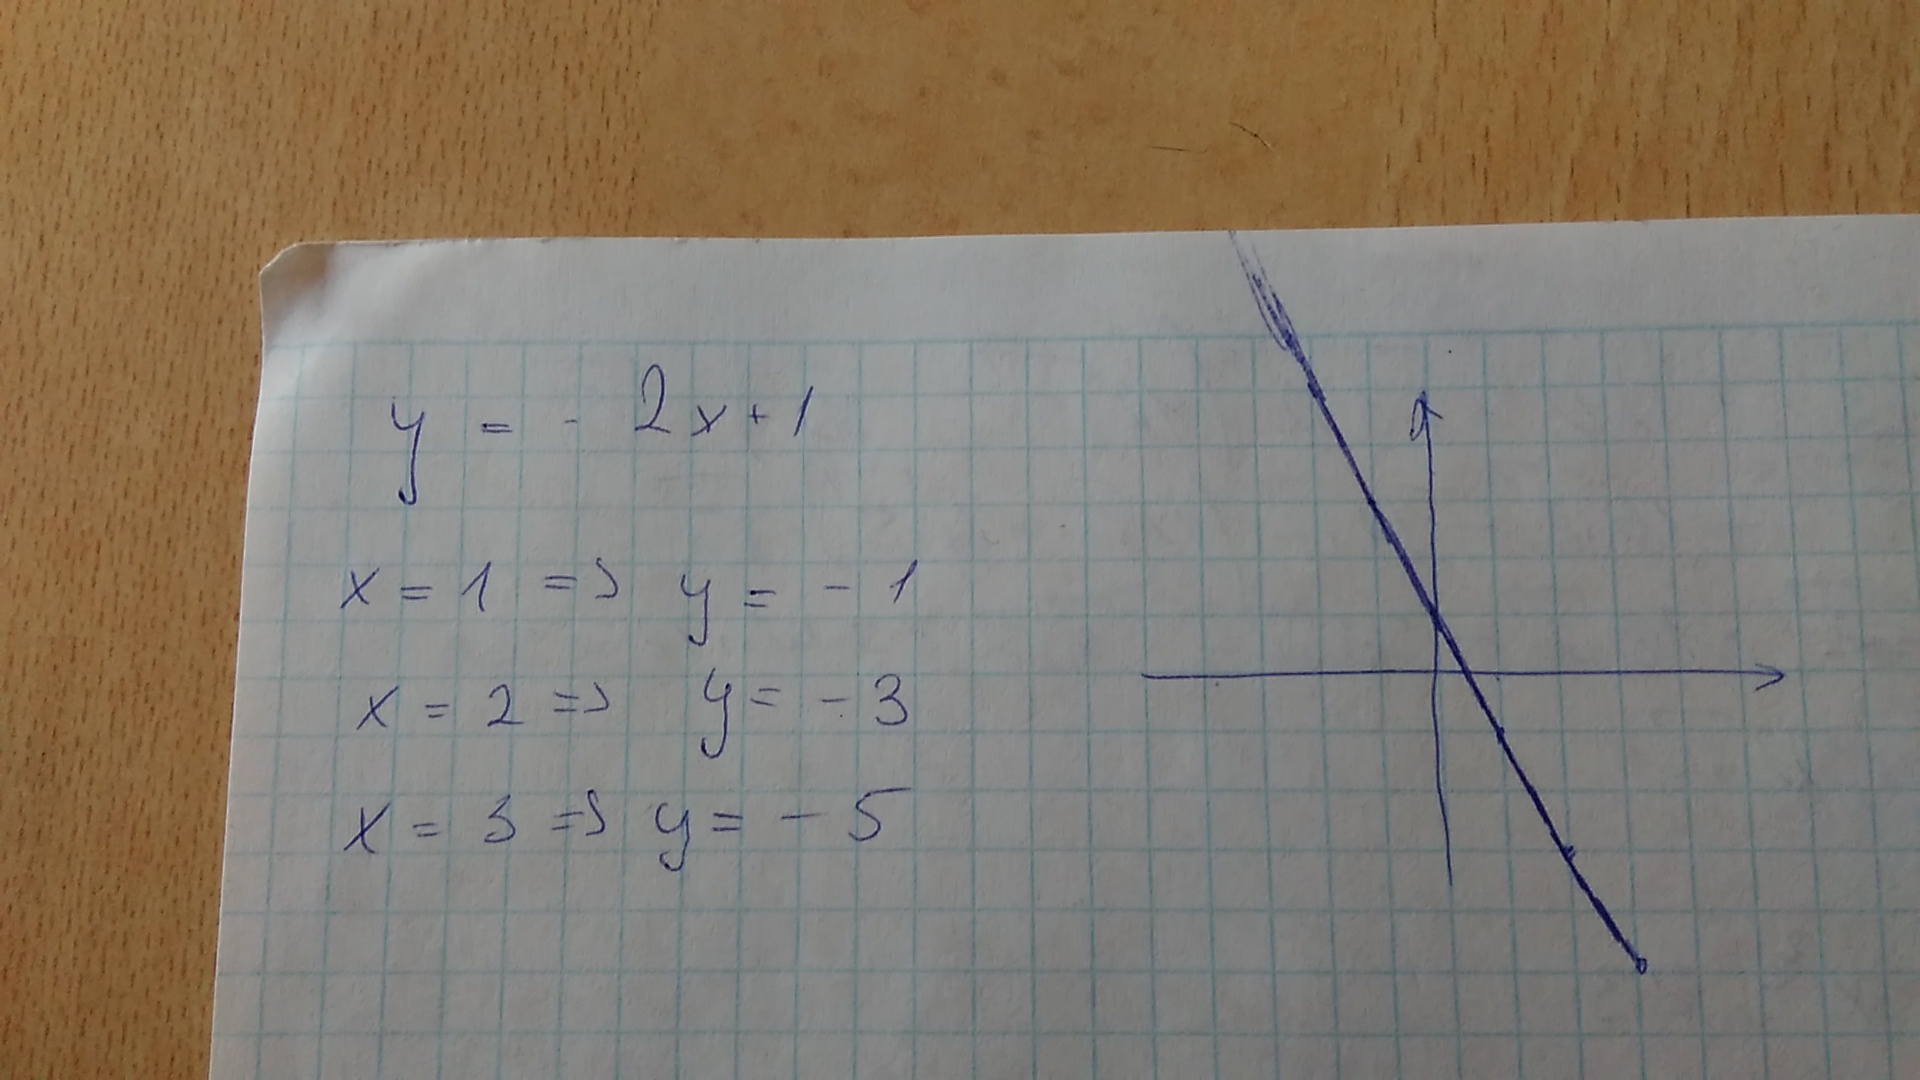 y = - 2x+1
x = 1 => y = - 1
x = 2 => y = - 3
x = 3 => y = - 5